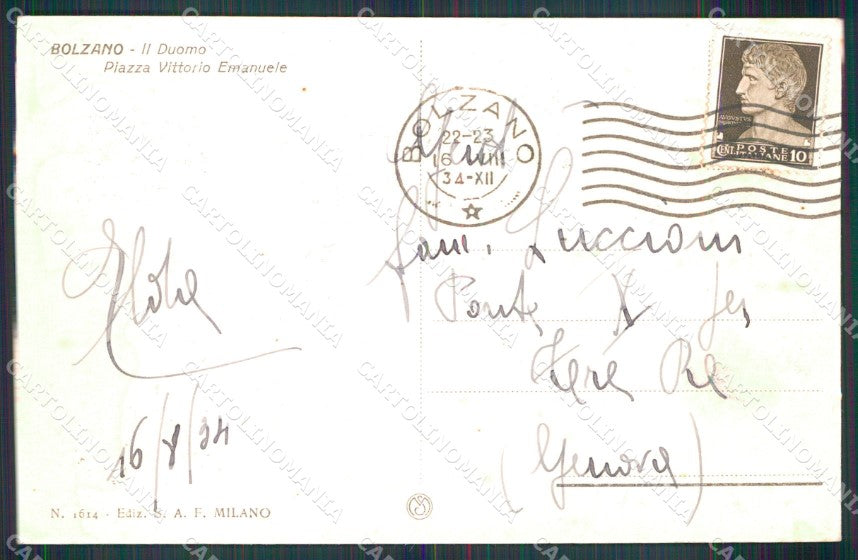 BOLZANO - Il Duomo
Piazza Vittorio Emanuele
BOLZANO
22-23
16 VIII
34-XII
AVGVSTVS
POSTE
CENT. ITALIANE 10
Fam. Luccioni
Ponte X
Genova
(Genova)
16/8/34
N. 1614 - Ediz. S. A. F. MILANO
CARTOLINOMANIA